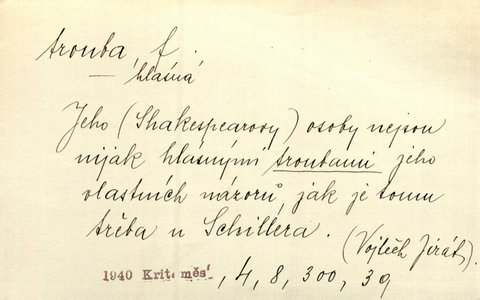 trouba, f.
hlásná
Jeho (Shakespearovy) osoby nejsou
nijak hlásnými troubami jeho
vlastních názorů, jak je tomu
třeba u Schillera.
(Vojtěch Jirát).
1940 Krit. měs., 4, 8, 300, 39